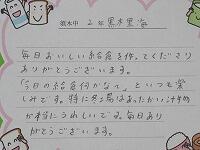 須木中 2年 黒木里海
毎日おいしい給食を作ってくださり
ありがとうございます。
「今日の給食何かな」といつも楽
しみです。特に冬場はあったかい汁物
が本当にうれしいです。毎日あり
がとうございます。